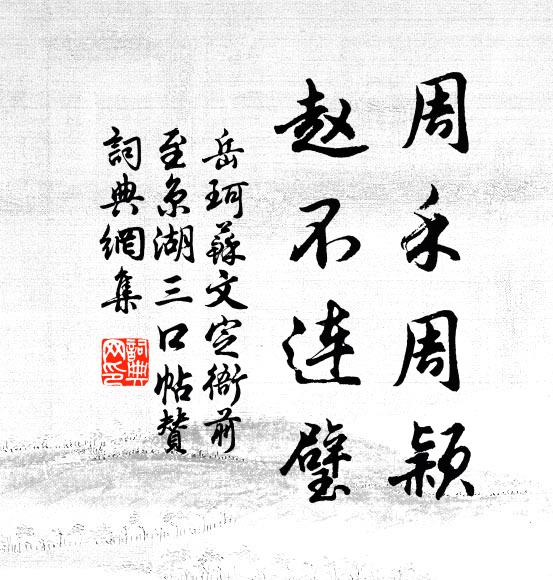 周禾周颖
赵不连璧
岳珂蘇文定衝前
至京湖三口帖赞
詞典網集
詞典
网印